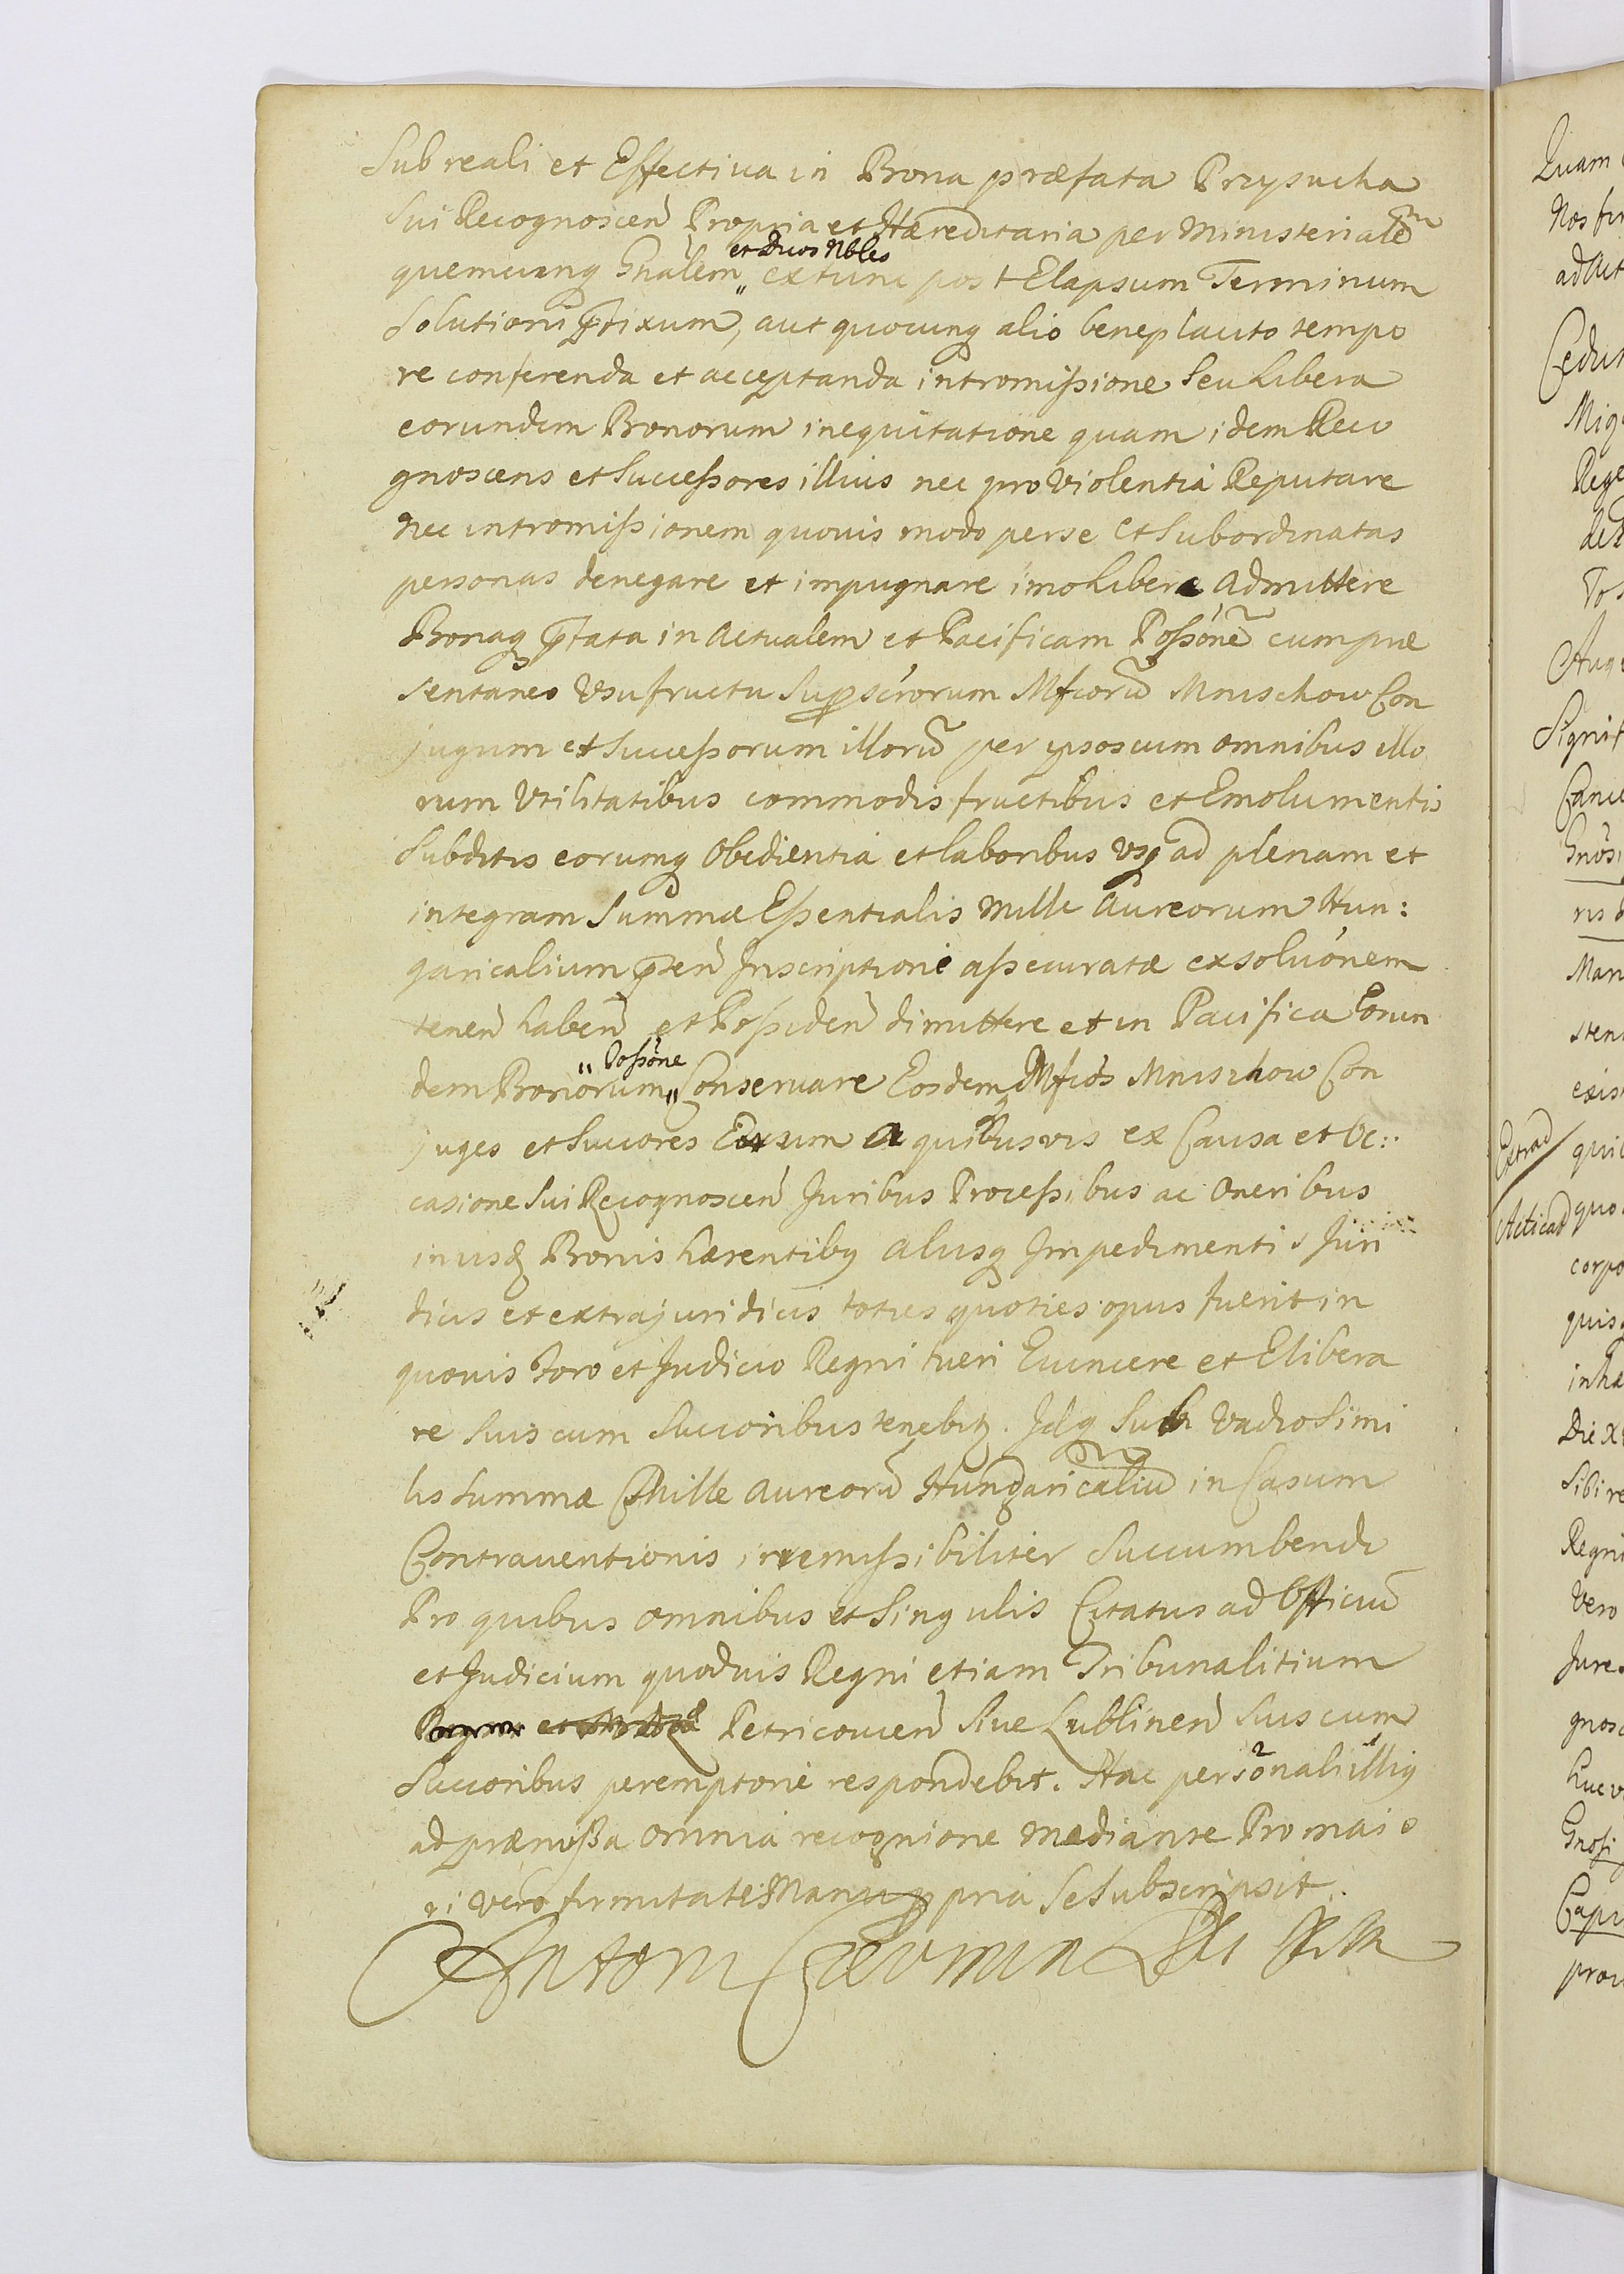 Sub reali et Effectiua in Bona præfata Przysucha
Sui Recognoscen Propria et Hæreditaria per Ministerialem
quemcunq Gnalem „ et Duos Nbles extunc post Elapsum Terminum
Solutioni præfixum, aut quocunq alio beneplacito tempo
re conferenda et acceptanda intromißione Seu Libera
eorundem Bonorum inequitatione quam idem Reco
gnoscens et Succeßores illius nec pro Violentia Reputare
nec intromißionem quouis modo per se et Subordinatas
personas denegare et impugnare imo Libere admittere
Bonaq pfata in actualem et Pacificam Poßonem cum præ
sentaneo Vsufructu Suprascrorum Mfcorum Mnischow Con
jugum et Succeßorum illorum per ipsos cum omnibus illo
rum Vtilitatibus commodis fructibus et Emolumentis
Subditis eorumq Obedientia et laboribus vsq ad plenam et
integram Summæ Eßentialis Mille Aureorum Hun:
garicalium pnten Inscriptione aßecuratæ exsoluonem
tenen haben et Poßiden dimittere et in Pacifica Eorun
dem Bonorum „ Poßone Conseruare Eosdem Mfcos Mnischow Con
juges et Succores Eorum a quibusvis ex Causa et Oc:
casione Sui Recognoscen Juribus Proceßibus ac Oneribus
in iisd Bonis hærentibq aliisq Impedimentis Juri
dicis et extrajuridicis toties quoties opus fuerit in
quouis Foro et Judicio Regni tueri Euincere et Elibera
re Suis cum Succoribus tenebitur. Idq Sub Vadio Simi
lis Summæ Mille Aureorum Hungaricalium in Casum
Contrauentionis irremißibiliter Succumbendi
Pro quibus omnibus et Singulis Citatus ad Officium
et Judicium quoduis Regni etiam Tribunalitium
Petricouien Siue Lublinen Suis cum
Succoribus peremptorie respondebit. Hac personali illiq
ad præmißa omnia recognione mediante Pro maio
ri vero firmitate Manu ppria Se Subscripsit.
Antoni
Quam
Nos fir
ad Act
Cedit
Rege
Augu
Signif
Cance
Gnosi
ris
Man
sten
exis
Extrad
quic
Acticat
quo
corpo
quis
inhæ
Die X
Sibi re
Regni
Vero
Jure
gnosc
huc v
Gnosi
Capi